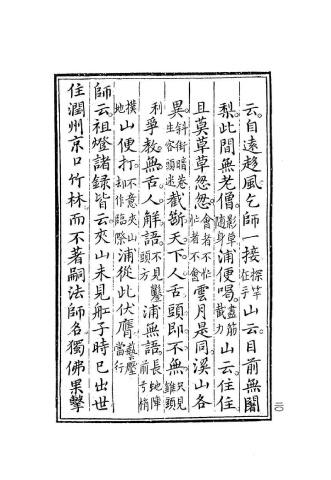 云。自遠趍風乞師一接。探竿在手山云。目前無闍
梨。此間無老僧。影草隨身浦便喝。盡筋截力山云。住住
且莫草草怱怱。會者不忙忙者不會雲月是同。溪山各
異。斜街暗巷生客頭迷截斷天下人舌頭即不無。只見錐頭
利爭教無舌人解語。不見鑿頭方浦無語。長蛇陣前弓梢
撲地山便打。不意夾山却作臨際浦從此伏膺。藝壓當行
師云。祖燈諸錄皆云夾山未見舡子時已出世
住潤州京口竹林而不著嗣法師名。獨佛果擊
二〇